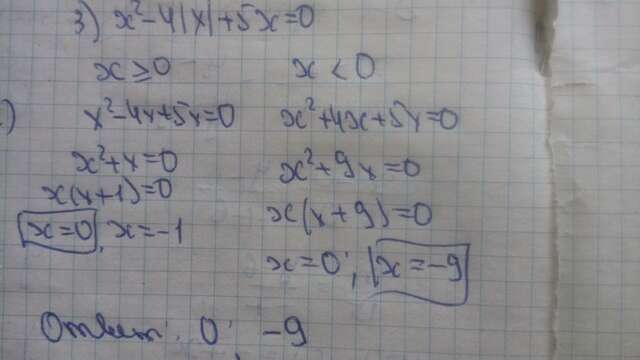 3) x²-4|x|+5x=0
x≥0 x<0
x²-4x+5x=0 x²+4x+5x=0
x²+x=0 x²+9x=0
x(x+1)=0 x(x+9)=0
x=0, x=-1
x=0; x=-9
Ответ: 0; -9